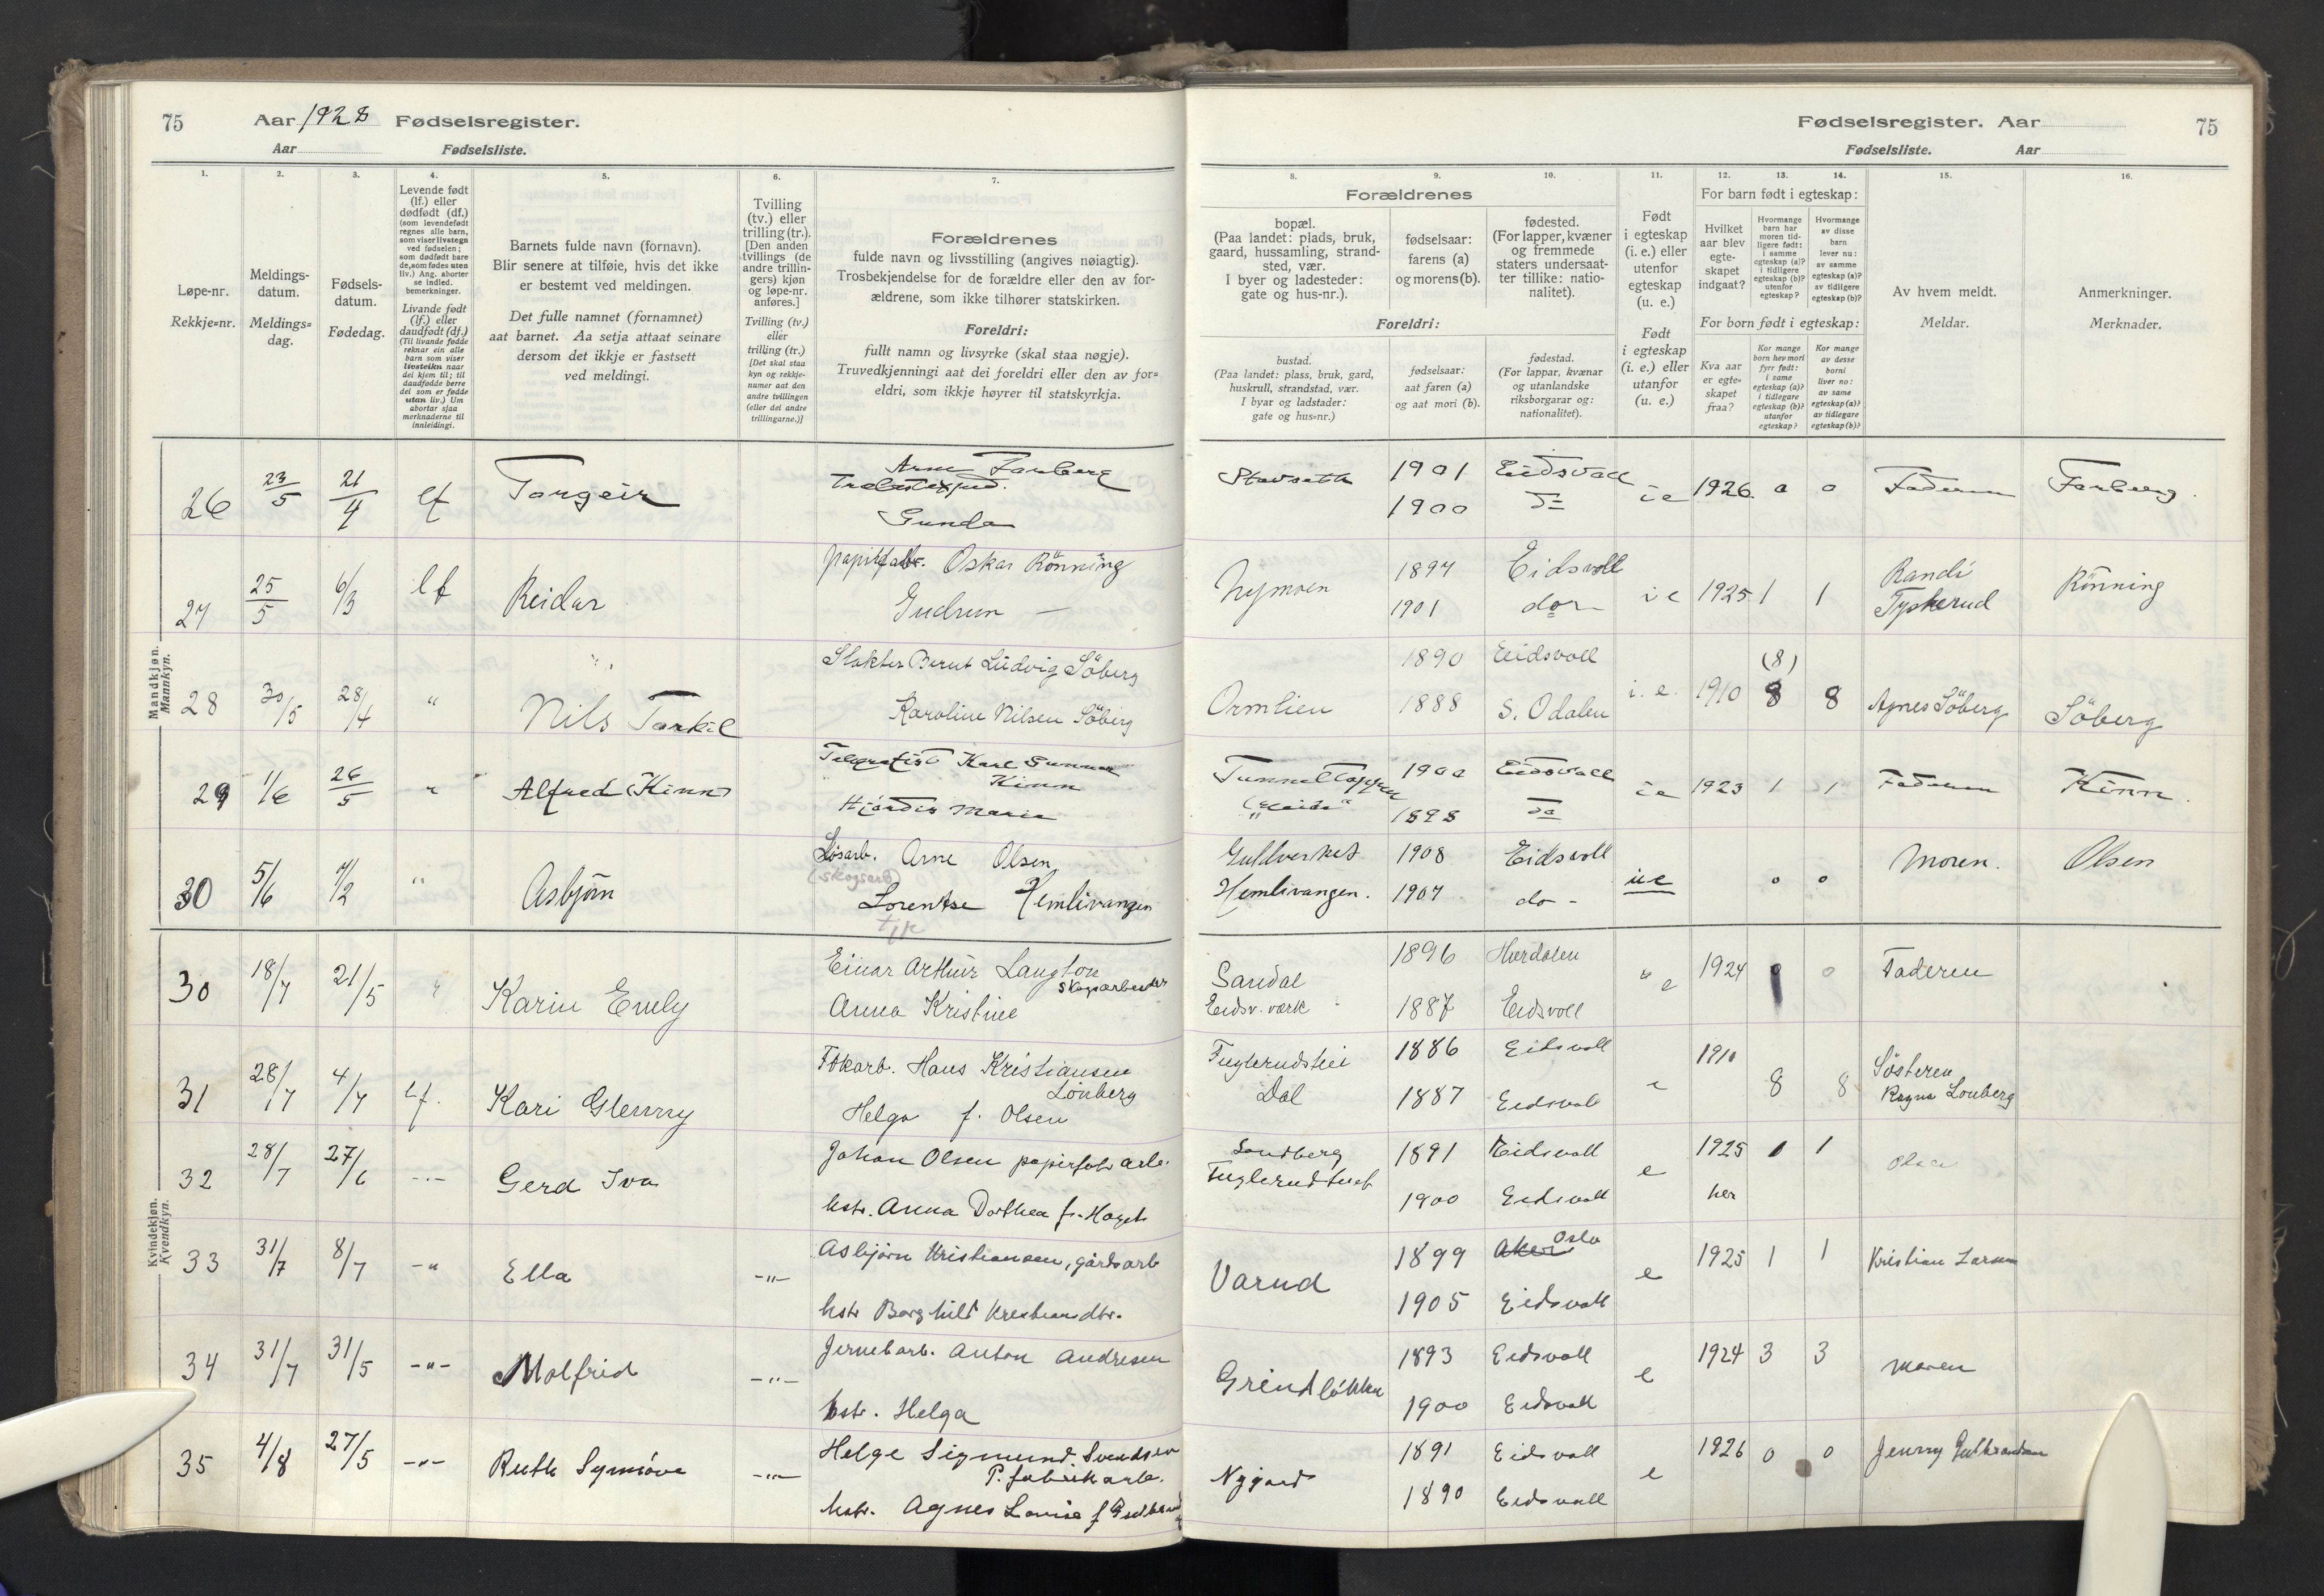 75 Aar 1928 Fødselsregister.
Aar Fødselsliste.
1. 2. 3. 4. 5. 6. 7.
Løpe-nr.
Rekkje=nr.
Meldings-
datum.
Meldings=
dag.
Fødsels-
datum.
Fødedag.
Levende født
(lf.) eller
dødfødt (df.)
(som levendefødt
regnes alle barn,
som viser livstegn
ved fødselen;
som dødfødt bare
de, som fødes uten
liv.) Ang. aborter
se indled.
bemerkninger.
Livande født
(lf.) eller
daudfødt (df.)
(Til livande fødde
reknar ein alle
barn som viser
livsteikn naar
dei kjem til; til
daudfødde berre
dei som er fødde
utan liv.) Um
abortar sjaa
merknaderne til
innleidingi.
Barnets fulde navn (fornavn).
Blir senere at tilføie, hvis det ikke
er bestemt ved meldingen.
Det fulle namnet (fornamnet)
aat barnet. Aa setja attaat seinare
dersom det ikkje er fastsett
ved meldingi.
Tvilling
(tv.) eller
trilling (tr.).
[Den anden
tvillings (de
andre trillin-
gers) kjøn
og løpe-nr.
anføres.]
Tvilling (tv.)
eller
trilling (tr.)
[Det skal staa
kyn og rekkje-
numer aat den
andre tvillingen
(eller dei andre
trillingarne.)]
Forældrenes
fulde navn og livsstilling (angives nøiagtig).
Trosbekjendelse for de forældre eller den av for-
ældrene, som ikke tilhører statskirken.
Foreldri:
fullt namn og livsyrke (skal staa nøgje).
Truvedkjenningi aat dei foreldri eller den av for=
eldri, som ikkje høyrer til statskyrkja.
Fødselsregister. Aar 75
Fødselsliste. Aar
8. 9. 10. 11. 12. 13. 14. 15. 16.
Forældrenes
bopæl.
(Paa landet: plads, bruk,
gaard, hussamling, strand-
sted, vær.
I byer og ladesteder:
gate og hus-nr.).
fødselsaar:
farens (a)
og morens (b).
fødested.
(For lapper, kvæner
og fremmede
staters undersaat-
ter tillike: natio-
nalitet).
Foreldri:
bustad.
(Paa landet: plass, bruk, gard,
huskrull, strandstad, vær.
I byar og ladstader:
gate og hus=nr.)
fødselsaar:
aat faren (a)
og aat mori (b).
fødestad.
(For lappar, kvænar
og utanlandske
riksborgarar og:
nationalitet).
Født
i egteskap
(i. e.) eller
utenfor
egteskap
(u. e.)
Født
i egteskap
(i. e.) eller
utanfor
(u. e.)
For barn født i egteskap:
Hvilket
aar blev
egte-
skapet
indgaat?
Hvormange
barn har
moren tid-
ligere født:
i samme
egteskap (a)?
i tidligere
egteskap (b)?
utenfor
egteskap?
Hvormange
av disse
barn
lever nu:
av samme
egteskap (a)?
av tidligere
egteskap (b)?
For born født i egteskap:
Kva aar
er egte=
skapet
fraa?
Kor mange
born hev mori
fyrr født:
i same
egteskap (a)?
i tidlegare
egteskap (b)?
utanfor
egteskap?
Kor mange
av desse
borni
liver no:
av same
egteskap (a)?
av tidlegare
egteskap (b)?
Av hvem meldt.
Meldar.
Anmerkninger.
Merknader.
Mandkjøn.
Mannkyn.
26 23/5 21/4 lf Torgeir Gunda 1901 1900 Eidsvoll do ie 1926 0 0 Faderen
27 25/5 6/3 lf Reidar Oskar Rönning Gudrun — Nymoen 1897 1901 Eidsvoll do ie 1925 1 1 Randi Tyskerud Rönning
28 30/5 28/4 " Nils Torkil Slakter Bernt Ludvig Söberg Karoline Nilsen Söberg Ormlien 1890 1888 Eidsvoll S. Odalen i. e. 1910 (8) 8 8 Agnes Söberg Söberg
29 1/6 26/5 " Alfred (Kinn) Telegrafist Karl Gunnar Kinn Hjördis Marie Tunneltoppen 1900 1898 Eidsvoll do ie 1923 1 1 Faderen Kinn
30 5/6 7/2 " Asbjörn Løsarb. Arne Olsen (skogsarb) Lorentse Hemlivangen Gullverket Hemlivangen. 1908 1907 Eidsvoll do - ue 0 0 Moren. Olsen
Kvindekjøn.
Kvendkyn.
30 18/7 21/5 " Karin Emely Einar Arthur Langton skogsarbeider Anna Kristine Sandal Eidsv. værk 1896 1887 Hurdalen Eidsvoll e 1924 0 0 Faderen
31 28/7 4/7 lf. Kari Glenny Hans Kristiansen Lönberg Helga f. Olsen Dal 1886 1887 Eidsvoll Eidsvoll e 1910 8 8 Søsteren Ragna Lönberg
32 28/7 27/6 -"- Gerd Iva Johan Olsen papirfabr arb. hstr. Anna Dorthea 1891 1900 Eidsvoll Eidsvoll e 1925 her 1 1 Olsen
33 31/7 8/7 -" Ella -"- Asbjörn Kristiansen, gårdsarb hstr Borghild Kristiansdtr. Varud 1899 1905 Aker Oslo Eidsvoll e 1925 1 1 Kristian Larsen
34 31/7 31/5 -"- Molfrid -"- Jernebarb. Anton Andresen hstr. Helga Grindløkka 1893 1900 Eidsvoll Eidsvoll e 1924 3 3 Moren
35 4/8 27/5 -"- Ruth Synnöve -"- Helge Sigmund Svendsen P. fabrikarb. hstr. Agnes Lovise f Nygard 1891 1890 Eidsvoll Eidsvoll e 1926 0 0 Jenny Gulbrandsen